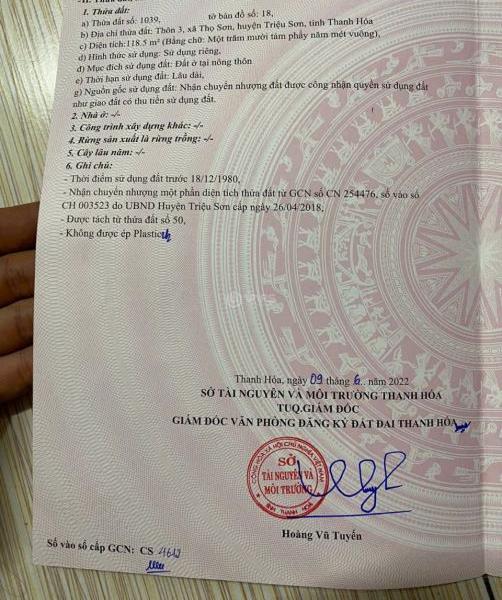 1. Thửa đất:
a) Thửa đất số: 1039, tờ bản đồ số: 18,
b) Địa chỉ thửa đất: Thôn 3, xã Thọ Sơn, huyện Triệu Sơn, tỉnh Thanh Hóa
c) Diện tích:118.5 m² (Bằng chữ: Một trăm mười tám phẩy năm mét vuông),
d) Hình thức sử dụng: Sử dụng riêng,
đ) Mục đích sử dụng đất: Đất ở tại nông thôn
e) Thời hạn sử dụng đất: Lâu dài,
g) Nguồn gốc sử dụng đất: Nhận chuyển nhượng đất được công nhận quyền sử dụng đất
như giao đất có thu tiền sử dụng đất.
2. Nhà ở: -/-
3. Công trình xây dựng khác: -/-
4. Rừng sản xuất là rừng trồng: -/-
5. Cây lâu năm: -/-
6. Ghi chú:
- Thời điểm sử dụng đất trước 18/12/1980,
- Nhận chuyển nhượng một phần diện tích thửa đất từ GCN số CN 254476, số vào sổ
CH 003523 do UBND Huyện Triệu Sơn cấp ngày 26/04/2018,
- Được tách từ thửa đất số 50,
- Không được ép Plastic
Thanh Hóa, ngày 09 tháng 6 năm 2022
SỞ TÀI NGUYÊN VÀ MÔI TRƯỜNG THANH HÓA
TUQ.GIÁM ĐỐC
GIÁM ĐỐC VĂN PHÒNG ĐĂNG KÝ ĐẤT ĐAI THANH HÓA
CỘNG HÒA XÃ HỘI CHỦ NGHĨA VIỆT NAM
SỞ
TÀI NGUYÊN VÀ
MÔI TRƯỜNG
TỈNH THANH HOÁ
Hoàng Vũ Tuyến
Số vào sổ cấp GCN: CS